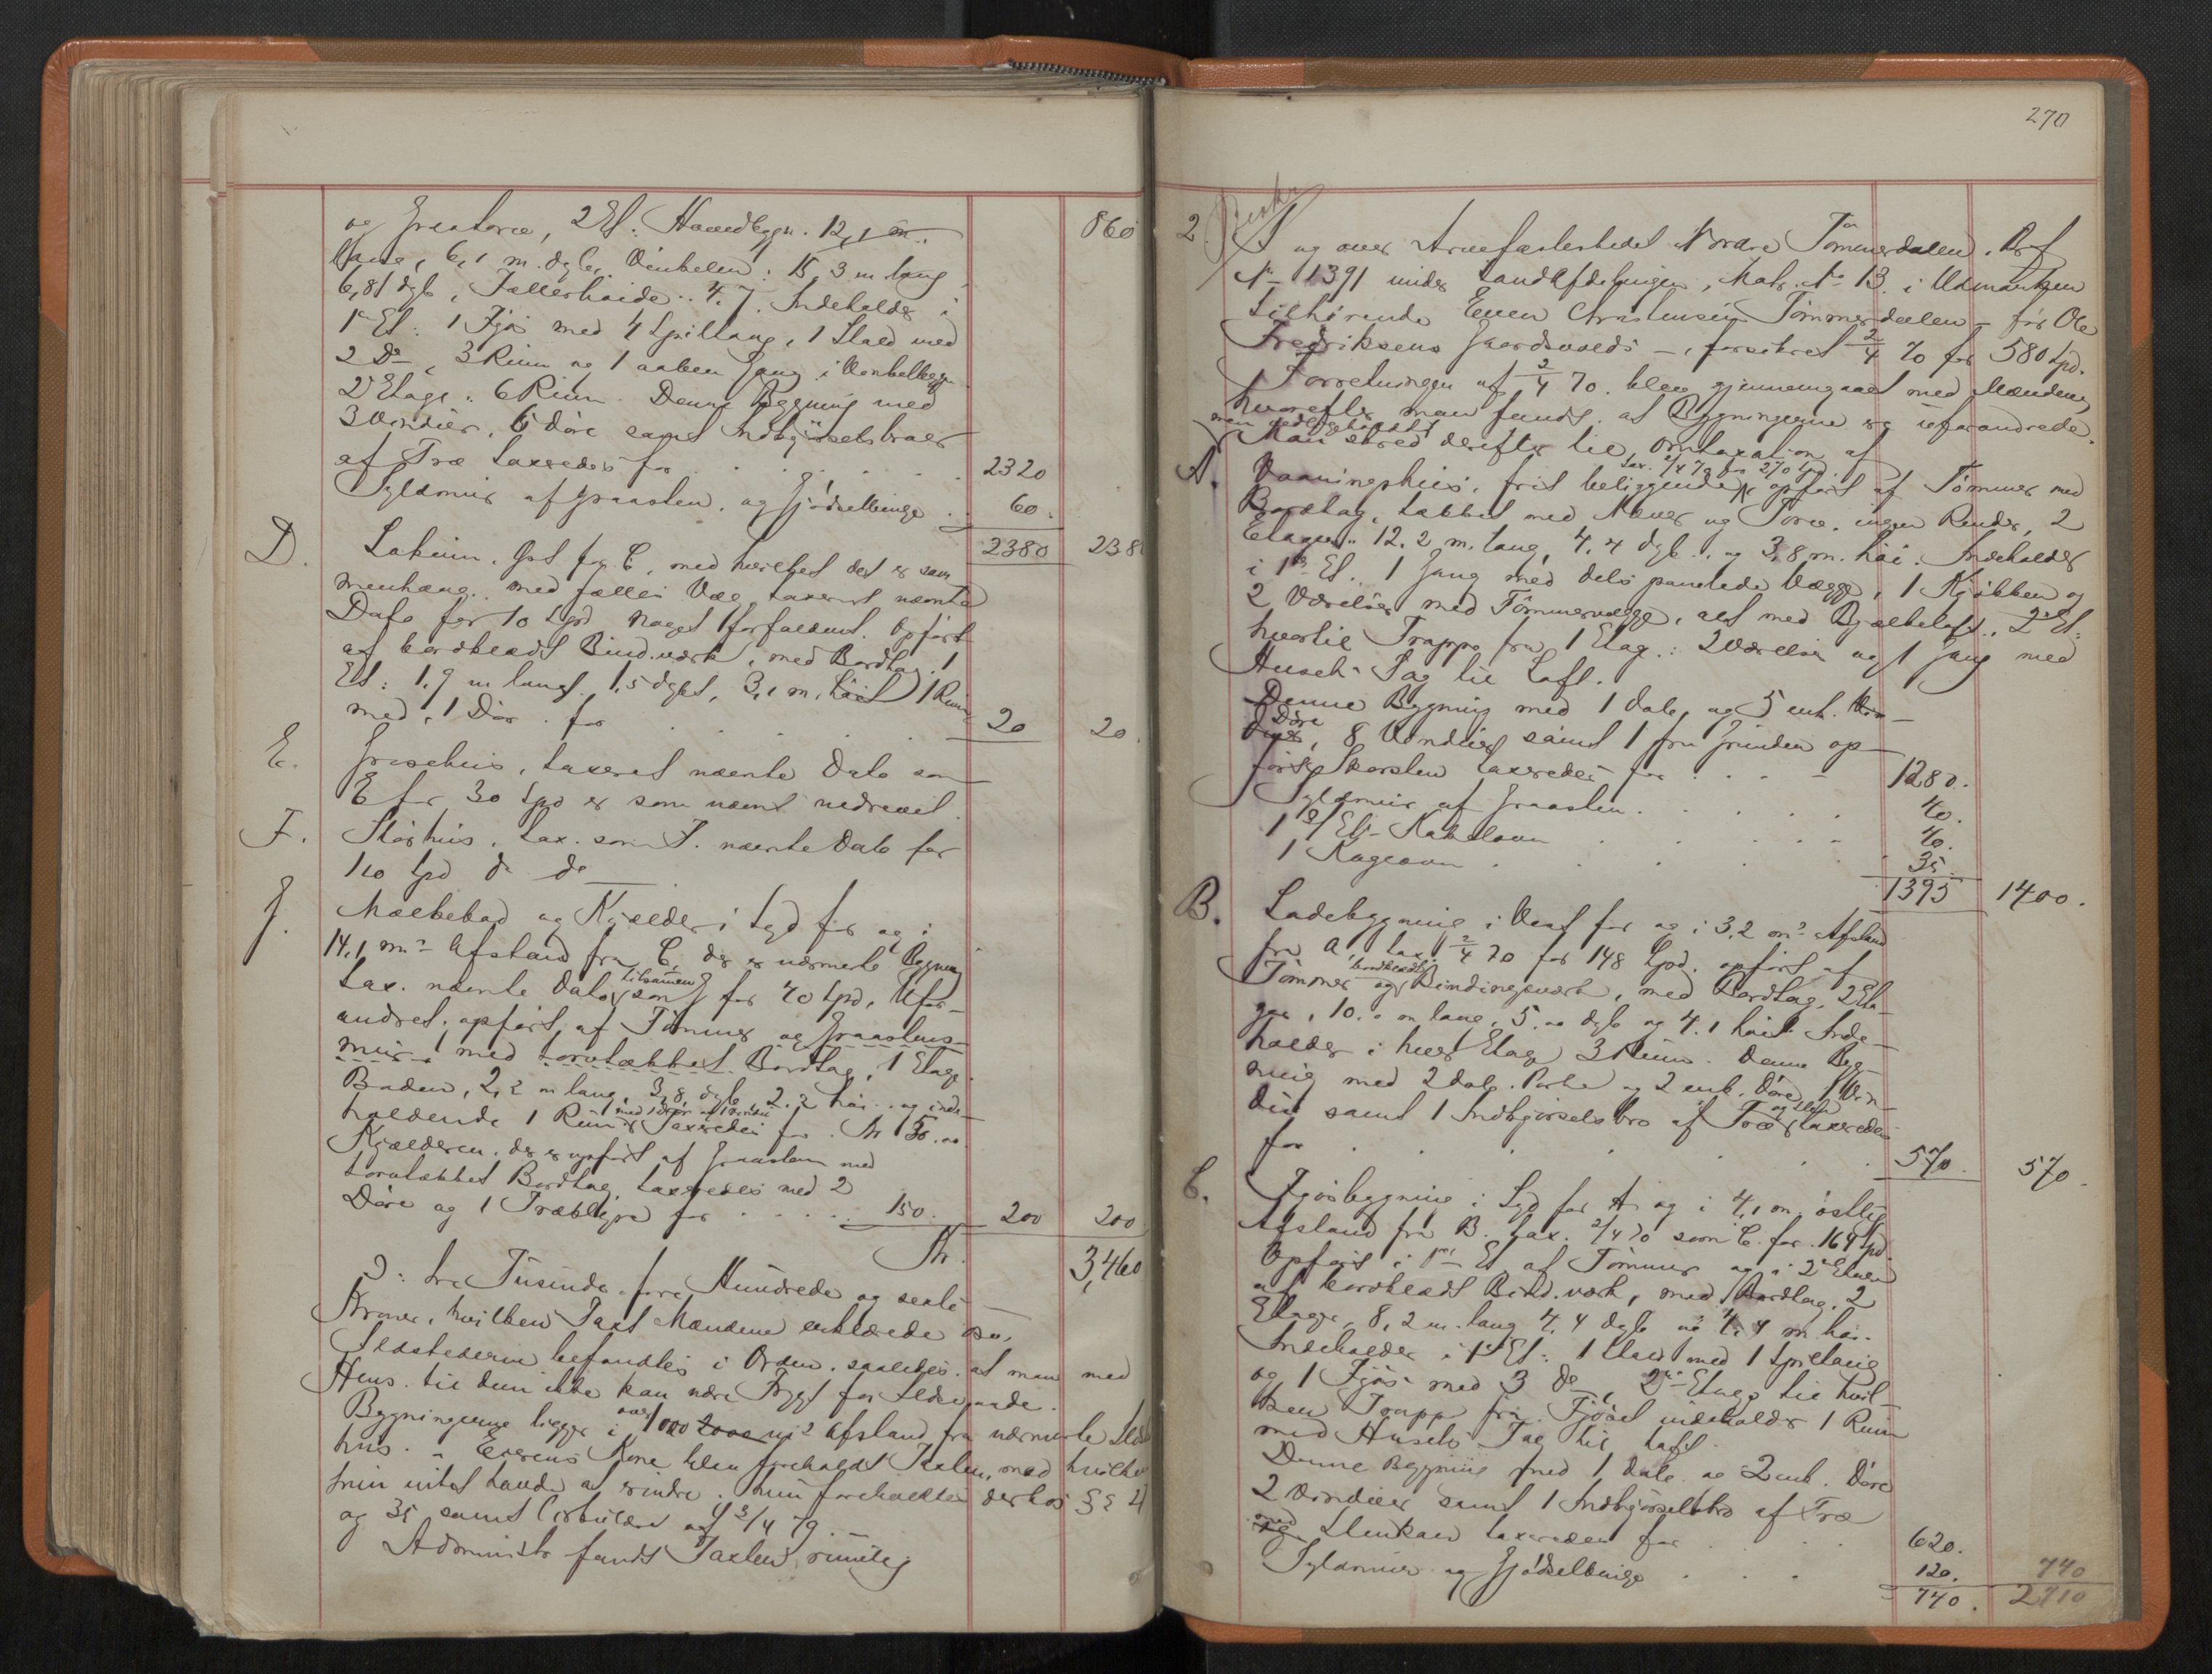 og Græstorv, 2 Et: Hovedbygn. 12,1 m. 860
lang, 6,1 m. dyb, Vinkelen: 15,3 m lang
6,81 dyb, Fællerhøide: 4,7. Indeholder i
1ste Et: 1 Fjøs med 4 Spiltaug, 1 Stald med
2 Do, 3 Rum og 1 aaben Gang i Vinkelbygn
2den Etage: 6 Rum. Denne Bygning med
3 Vinduer, 6 Døre samt Indkjørselsbroer
af Træ taxeredes for 2320
Syldmur af Graasten og Gjødselbinge 60.
2380 2380
D. Lokum, Øst for C, med hvilket det er sam
menhæng. med fælles Væg taxeret nævnte
Dato for 10 Spd noget forfaldent. Opført
af bordklædt Bind.værk, med Bordtag. 1
Et: 1,9 m langt, 1,5 dybt, 3,1 m. høit, 1 Rum
med 1 Dør for 20 20.
E. Grisehus, taxeret nævnte Dato som
E for 30 Spd er som nævnt nedrevet.
F. Størhus, tax. som F. nævnte Dato for
110 Spd do do
G. Mælkebod og Kjælder i Syd for og i
14,1 m's Afstand fra C, der er nærmeste Bygning
Tax. nævnte Dato tilsammen som G for 40 Spd, Ufor-
andret, opført af Tømmer og Graastens-
mur, med torvtækket Bordtag, 1 Etage
Boden, 2,2 m lang, 3,8 dyb, 2,2 høi og inde-
holdende 1 Rum med 1 Dør og 1 Vindu Taxeredes for Kr 50.00
Kjælderen, der er opført af Graasten med
torvtækket Bordtag, taxeredes med 2
Døre og 1 Træblyre for 150. 200 200
Kr. 3,460
ɔ: tre Tusinde fire Hundrede og sexti
Kroner, hvilken Taxt Mændene erklærede
Ildstederne befandtes i Orden, saaledes at man med
Hens. til dem ikke kan nære Frygt for Ildsvaade.
Bygningerne ligger i over 1000 2000 m's Afstand fra nærmeste
hus. - Eierens Kone blev foreholdt Taxten, mod hvilken
hun intet havde at erindre. Hun foreholdtes derhos §§ 21
og 35 samt Cirkulære af 4 3/4 79.
Administr fandt Taxten rimelig
270
2. I og over Arvefæstestedet Nordre Tømmerdalen, Br.f
No 1391 under Landafdelingen, Matr. No 13. i Udmarken
tilhørende Even Christensen Tømmerdalen - før Ole
Fredriksens Gaardsvolds -, forsikret 2/4 70 for 580 Spd.
Forretningen af 2/4 70. blev gjennemgaaet med Mændene,
hvorefter man fandt, at Bygningerne er uforandrede.
men vedligeholdt
Man skred derefter til Omtaxation af
A. Vaaningshus, frit beliggende, tax. 2/4 70 for 270 Spd. opført af Tømmer med
Bordtag, tækket med Næver og Torv, ingen Render, 2
Etager: 12,2 m. lang, 4,4 dyb og 3,8 m. høi. Indeholder
i 1ste Et. 1 Gang med dels panelede Vægge, 1 Kjøkken og
2 Værelser med Tømmervægge, alt med Bjælkeloft. 2den Et:
hvortil Trappe fra 1 Etag: 2 Værelser og 1 Gang med
Husets Tag til Loft.
Denne Bygning med 1 dob. og 5 enk. Vin-
Døre, 8 Vinduer samt 1 fra Grunden op-
ført Skorsten taxeredes for 1280.
Syldmur af Graasten 40.
1 2/Et- Kakelovn 40.
1 Kogeovn 35.
1395 1400.
B. Ladebygning i Vest for og i 3,2 m's Afstand
fra A, tax. 2/4 70 for 148 Spd. opført af
Tømmer og bordklædt Bindingsværk, med Bordtag, 2 Eta-
ger, 10.0 m lang, 5.00 dyb og 4.1 høi. Inde-
holder i hver Etage 3 Rum. Denne Byg-
ning med 2 dob. Porte og 2 enk. Døre, 1 Vin-
due samt 1 Indkjørselsbro af Træ og Sten taxeredes
for 570. 570.
C. Fjøsbygning i Syd for A og i 4,1 m. østlig
Afstand fra B. tax. 2/4 70 som C. for 164 Spd.
Opført i 1ste Et. af Tømmer og i 2den Etagen
af bordklædt Bind.værk, med Bordtag, 2
Etager, 8,2 m. lang 4,4 dyb og 4,4 m. høi.
Indeholder i 1ste Et: 1 Stald med 1 Spiltaug
og 1 Fjøs med 3 do, 2den Etage til hvil-
ken Trapp fra Fjøset indeholder 1 Rum
med Husets Tag til Loft.
Denne Bygning med 1 dob. og 2 enk. Døre
2 Vinduer samt 1 Indkjørselsbro af Træ
med Stenkar taxeredes for 620.
Syldmur og Gjødselbinge 120. 740
740. 2710